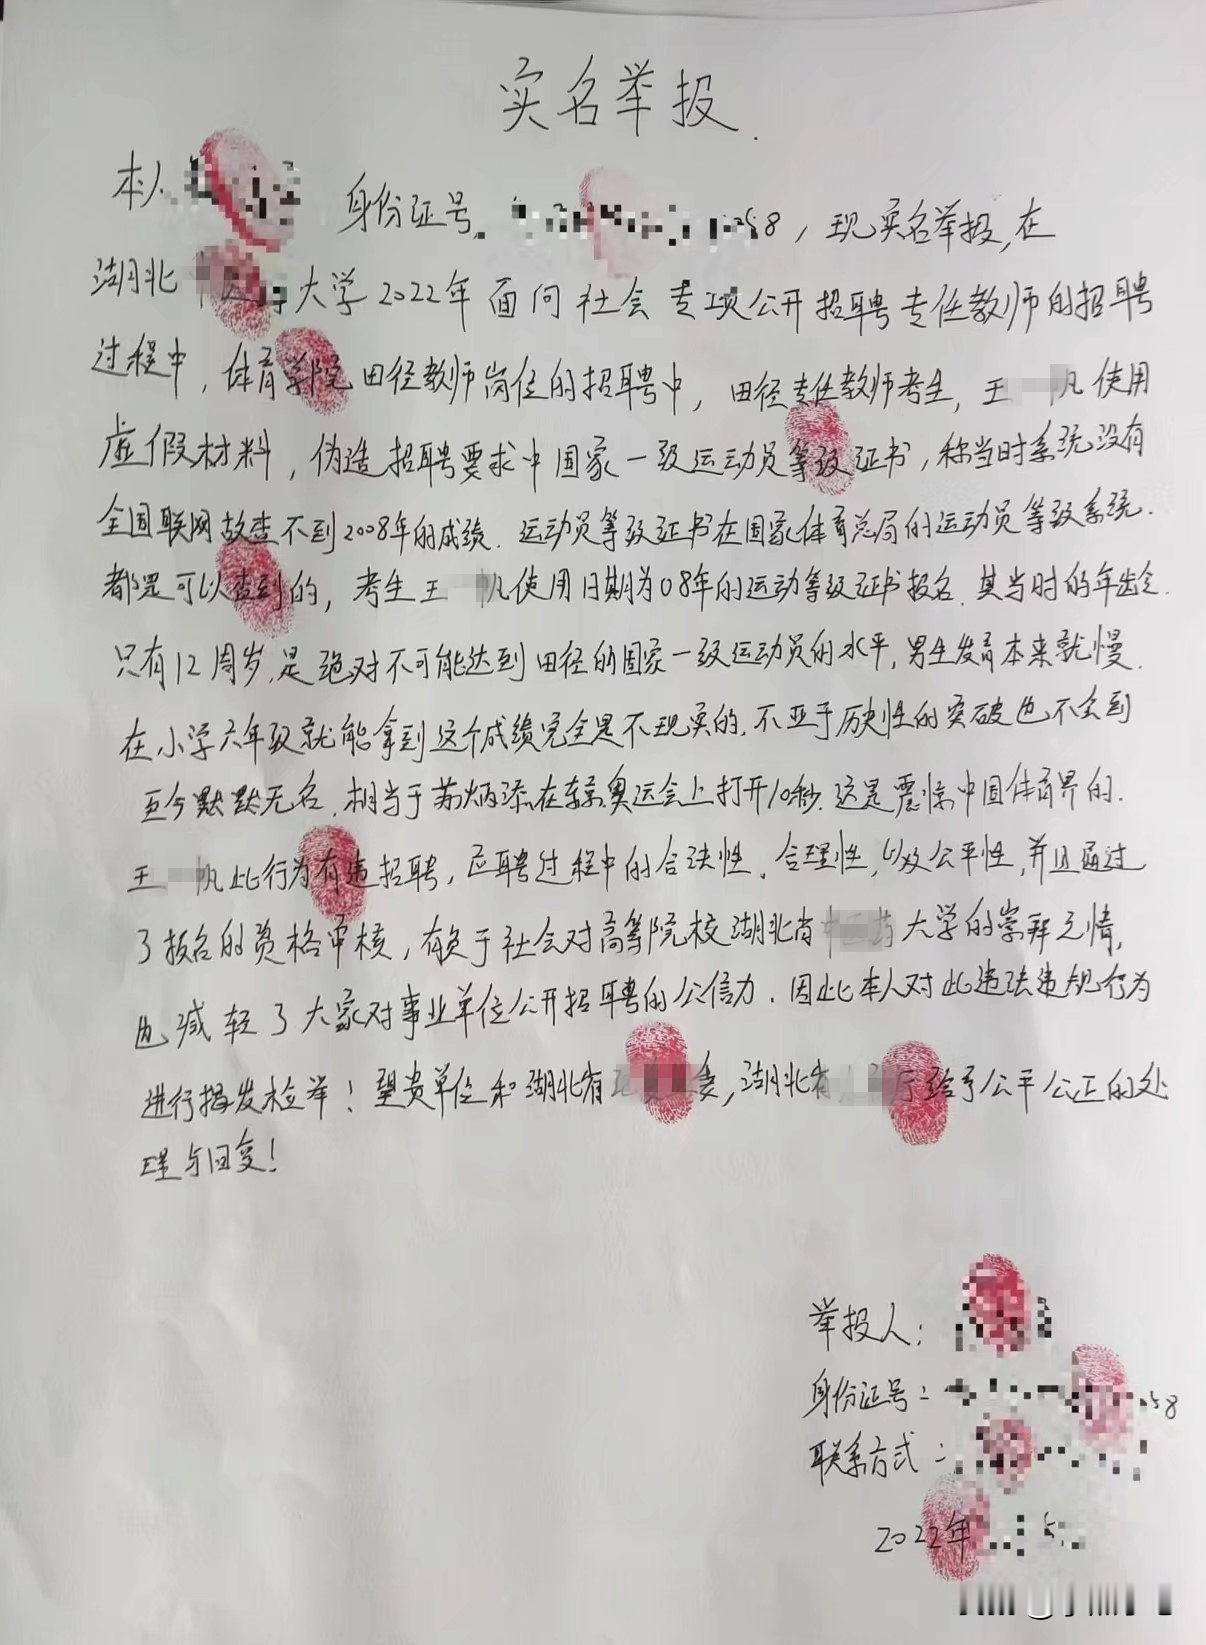 实名举报.
本人 身份证号. 58，现实名举报，在
湖北 大学2022年面向社会专项公开招聘专任教师的招聘
过程中，体育学院田径教师岗位的招聘中，田径专任教师考生，王 帆使用
虚假材料，伪造招聘要求中国家一级运动员等级证书，称当时系统没有
全国联网故查不到2008年的成绩．运动员等级证书在国家体育总局的运动员等级系统．
都是可以查到的，考生王 帆使用日期为08年的运动等级证书报名．其当时的年龄
只有12周岁，是绝对不可能达到田径的国家一级运动员的水平，男生发育本来就慢．
在小学六年级就能拿到这个成绩完全是不现实的．不亚于历史性的突破也不会到
至今默默无名．相当于苏炳添在东京奥运会上打开10秒．这是震惊中国体育界的．
王 帆此行为有违招聘，应聘过程中的合法性、合理性，以及公平性，并且通过
了报名的资格审核，有负于社会对高等院校湖北省 大学的崇拜之情，
也减轻了大家对事业单位公开招聘的公信力．因此本人对此违法违规行为
进行揭发检举！望贵单位和湖北省 委，湖北省 厅给予公平公正的处
理与回复！
举报人：
身份证号： 58
联系方式：
2022年 5.